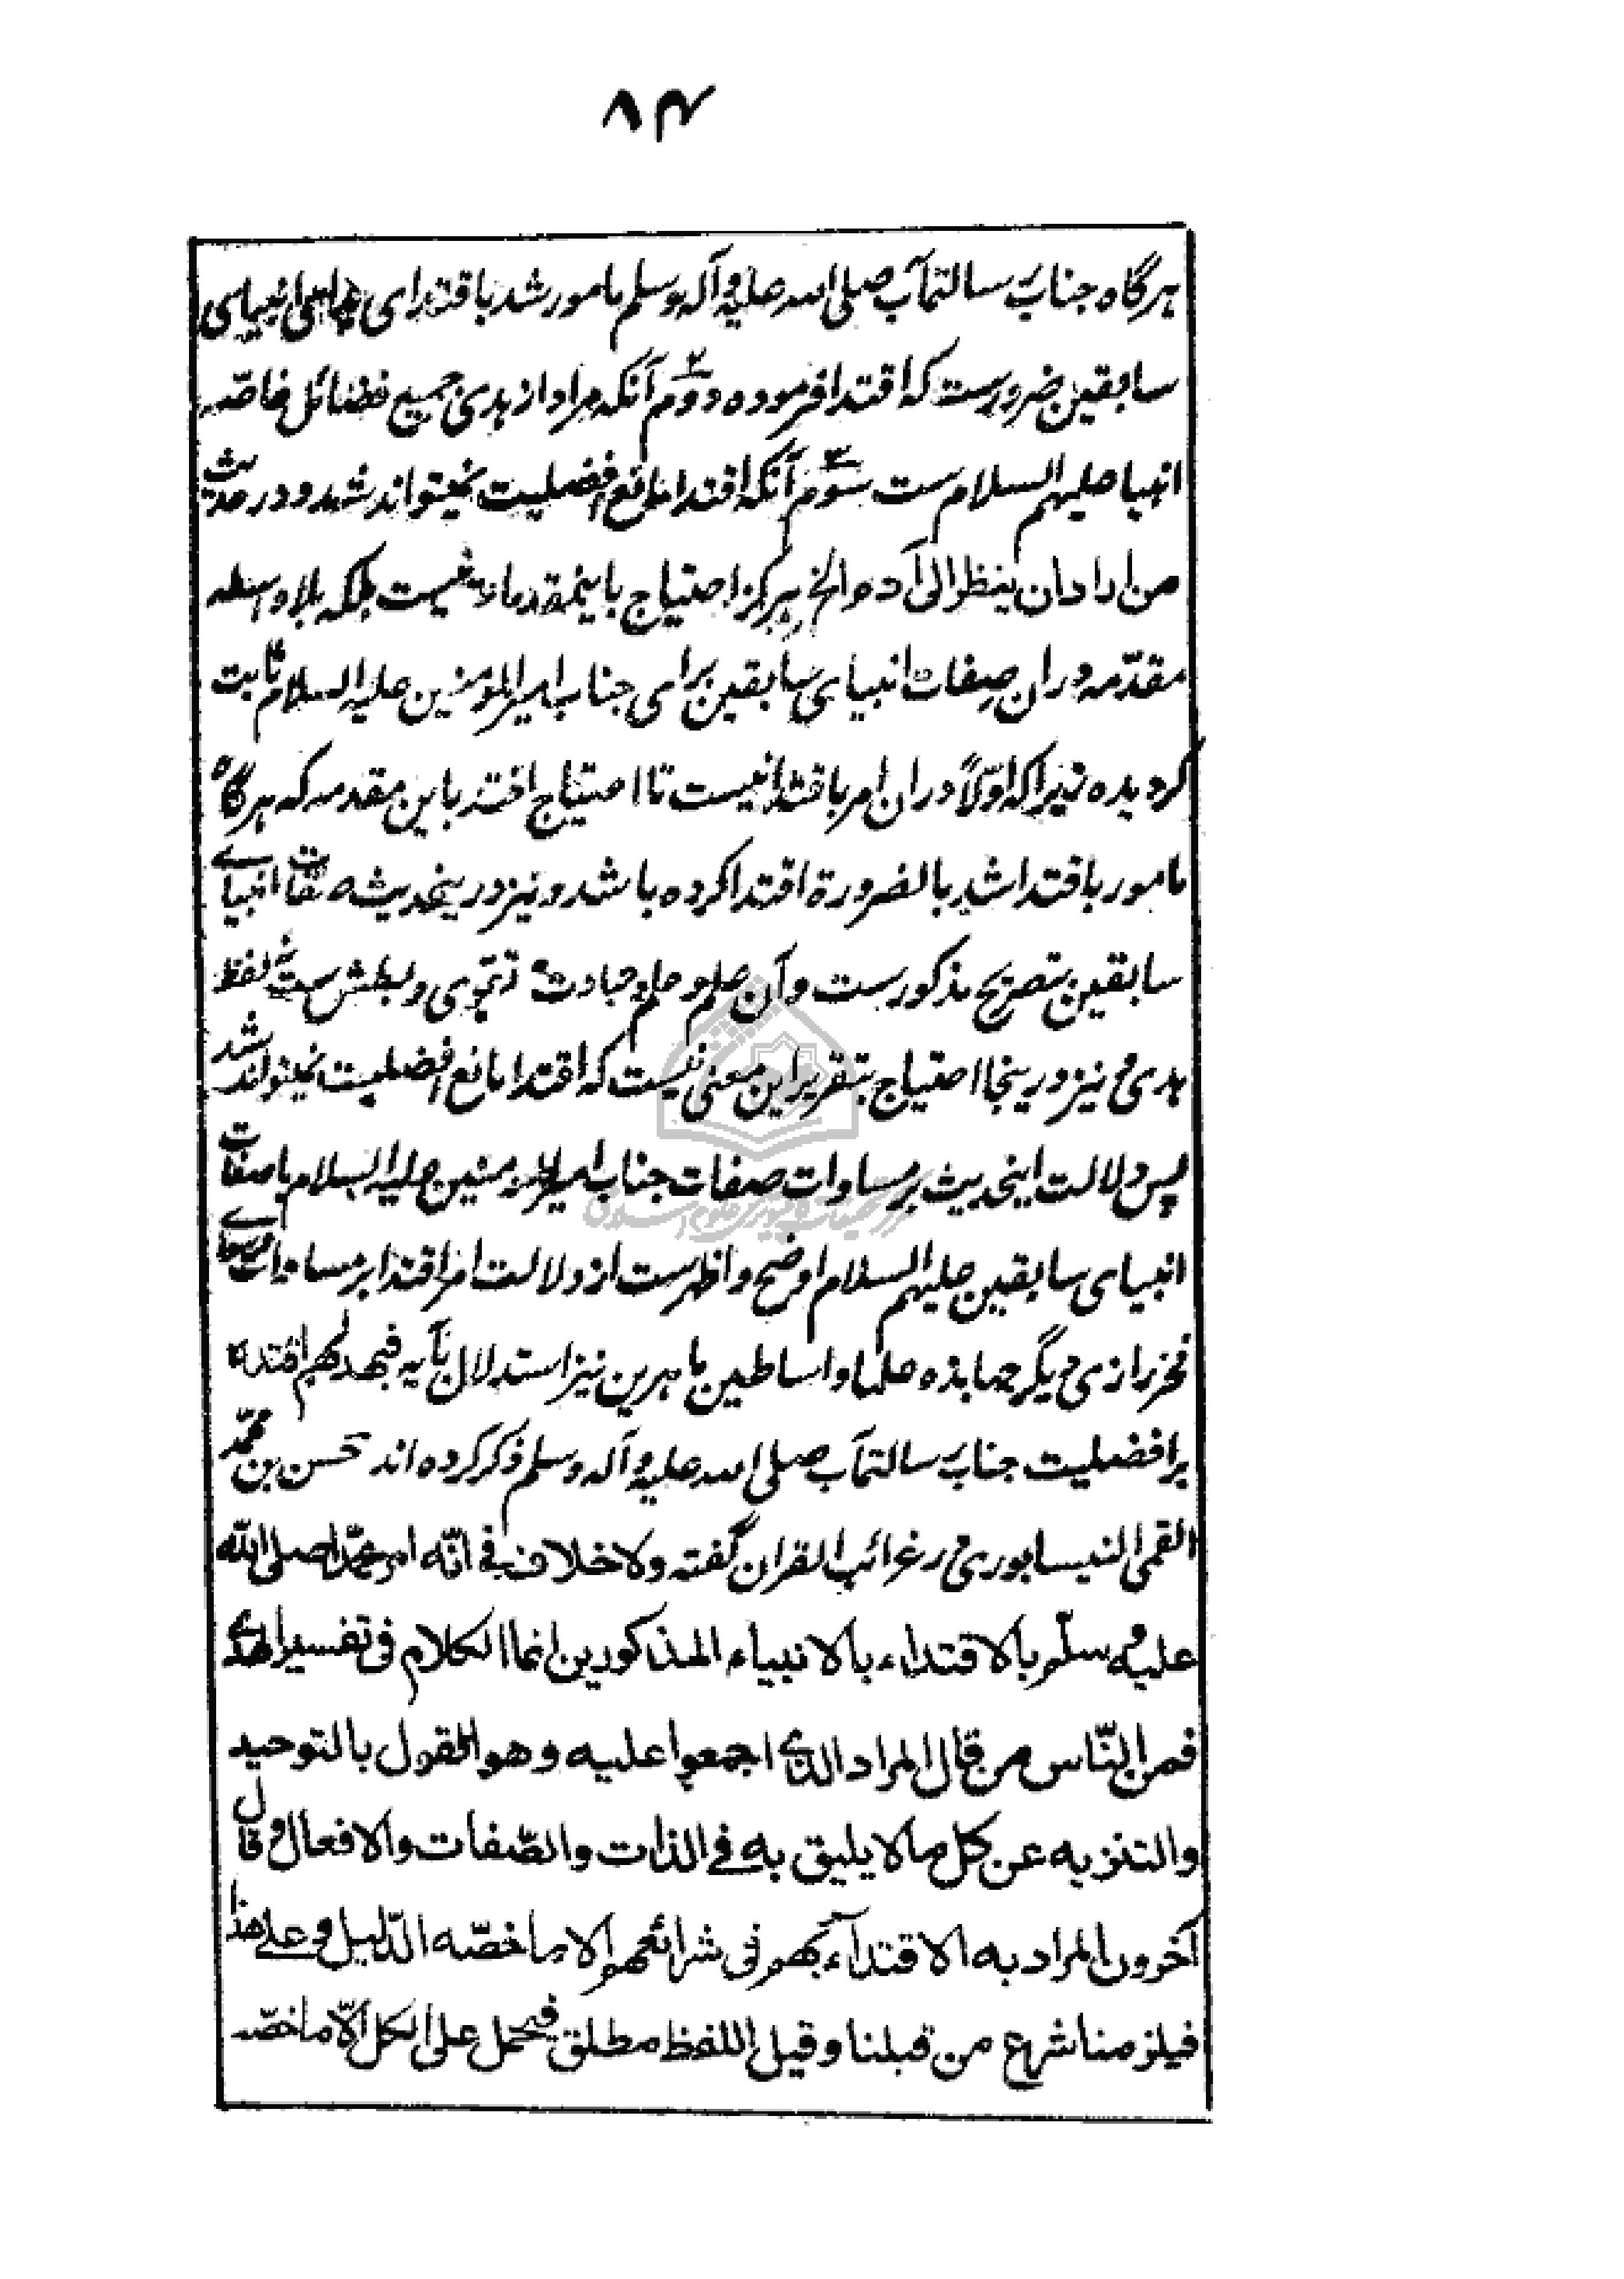 ۸۴
هرگاه جناب رسالتمآب صلی الله علیه وآله وسلم مامور شد باقتدای انبیای
سابقین ضرورست که اقتدا فرموده دوم آنکه مراد از هدی جمیع فضائل خاصه
انبیا علیهم السلام ست سوم آنکه اقتدا مانع افضلیت نمیتواند شد و در حدیث
من اراد ان ینظر الی آدم الخ هرگز احتیاج باینمقدمات نیست بلکه بلا واسطه
مقدمه دران صفات انبیای سابقین برای جناب امیرالمومنین علیه السلام ثابت
گردیده زیرا که اولاً دران امر باقتدا نیست تا احتیاج افتد باین مقدمه که هرگاه
مامور باقتدا شد بالضرورة اقتدا کرده باشد و نیز درینحدیث صفات انبیاے
سابقین بتصریح مذکورست و آن علم و حلم و عبادت و تقوی و بطش ست نه لفظ
هدی و نیز درینجا احتیاج بتقریر این معنی نیست که اقتدا مانع افضلیت نمیتواند شد
پس دلالت اینحدیث بر مساوات صفات جناب امیرالمومنین علیه السلام با صفات
انبیای سابقین علیهم السلام اوضح و اظهرست از دلالت امر اقتدا بر مساوات و سواے
فخر رازی دیگر جهابذه علما و اساطین ماهرین نیز استدلال بآیه فبهدٰهم اقتده
بر افضلیت جناب رسالتمآب صلی الله علیه وآله وسلم ذکر کرده اند حسن بن محمّد
القمی النیسابوری در غرائب القران گفته ولا خلاف فی انّه امر محمّدا صلی اللّه
علیه وسلّم بالاقتداء بالانبیاء المذکورین انما الکلام فی تفسیر الهدے
فمن النّاس من قال المراد الذی اجمعوا علیه وهو القول بالتوحید
والتنزیه عن کل ما لا یلیق به فی الذات والصّفات والافعال وقال
آخرون المراد به الاقتدآء بهم فی شرائعهم الا ما خصّه الدّلیل وعلی هذا
فیلزمنا شرع من قبلنا وقیل اللفظ مطلق فیحمل علی الکل الّا ما خصّه